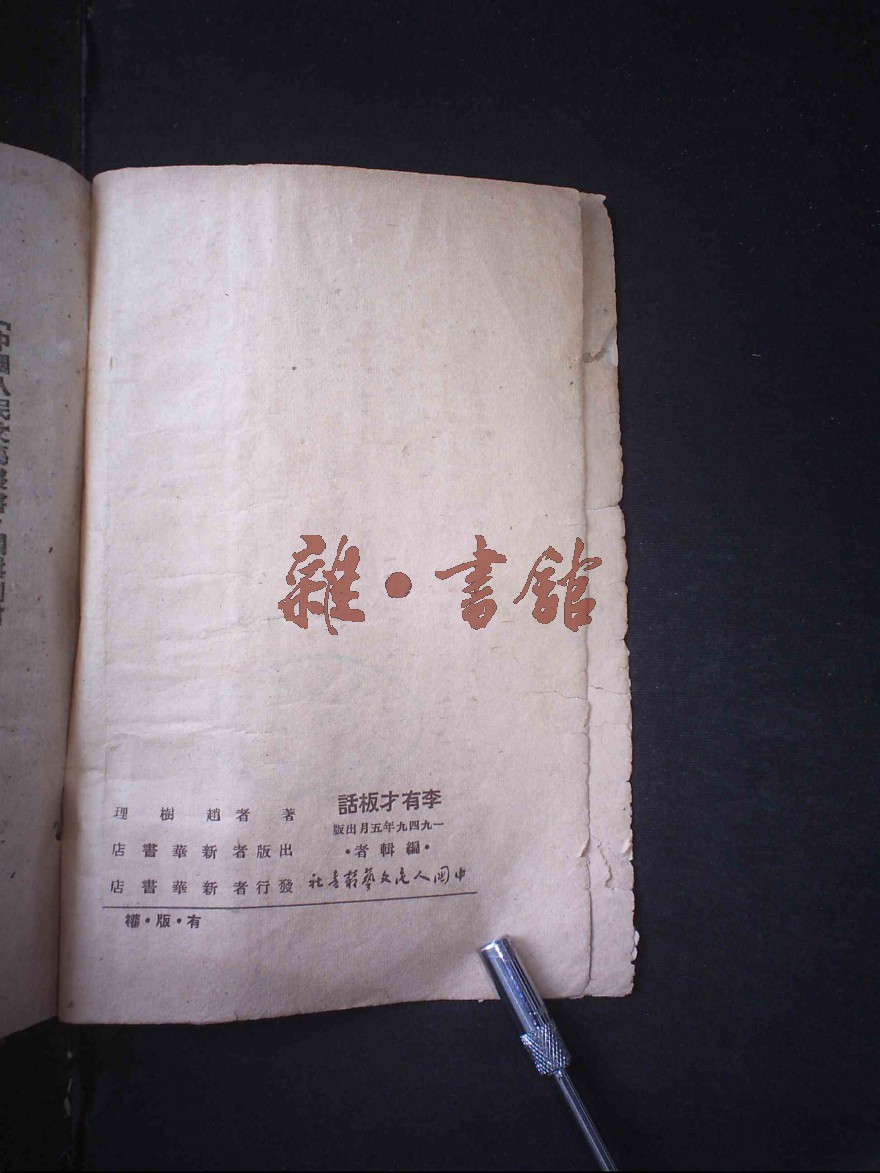 雜·書館
李有才板話
一九四九年五月出版
·編輯者·
中国人民文藝叢書社
著者 趙樹理
出版者 新華書店
發行者 新華書店
有·版·權